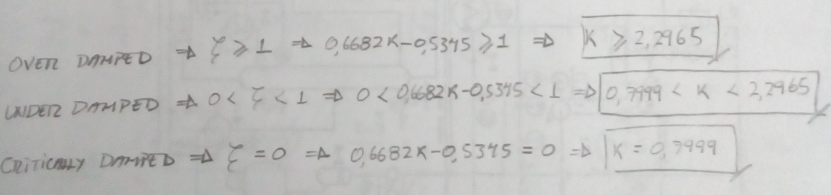 OVER DAMPED ⇒ ξ ≥ 1 ⇒ 0,6682K-0,5345 ≥ 1 ⇒ K ≥ 2,2965
UNDER DAMPED ⇒ 0 < ξ < 1 ⇒ 0 < 0,6682K-0,5345 < 1 ⇒ 0,7999 < K < 2,2965
CRITICALLY DAMPED ⇒ ξ = 0 ⇒ 0,6682K-0,5345 = 0 ⇒ K = 0,7999